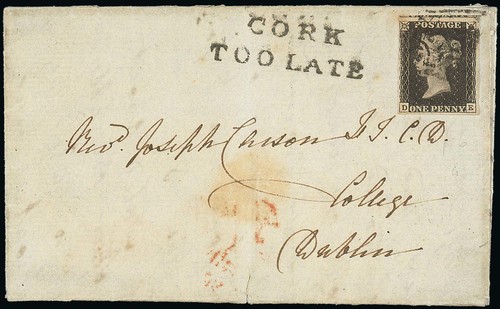 CORK
TOO LATE
POSTAGE
D ONE PENNY E
Revd. Joseph Carson F.T.C.D.
College
Dublin